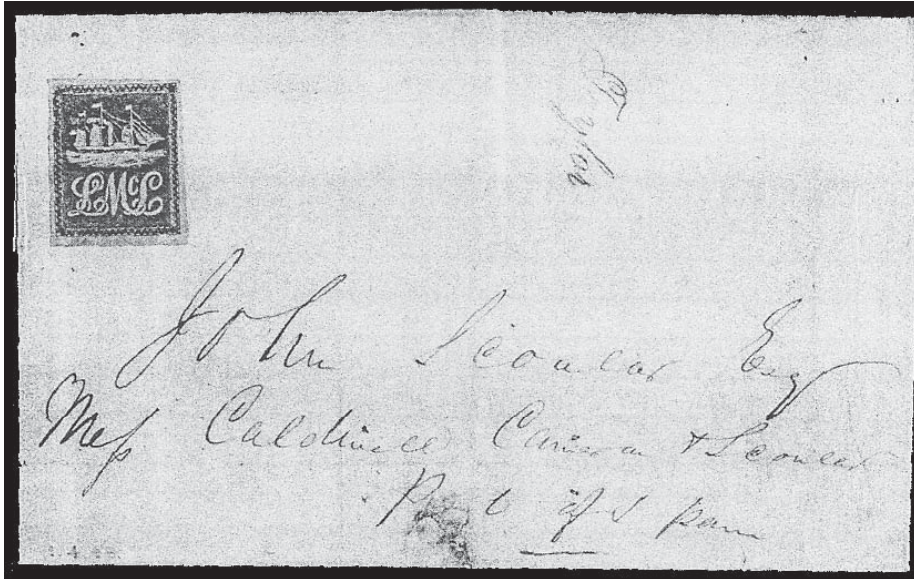 LMcL
John Scoular Esq
Mess Caldwell Cameron & Scoular
Port of Spain